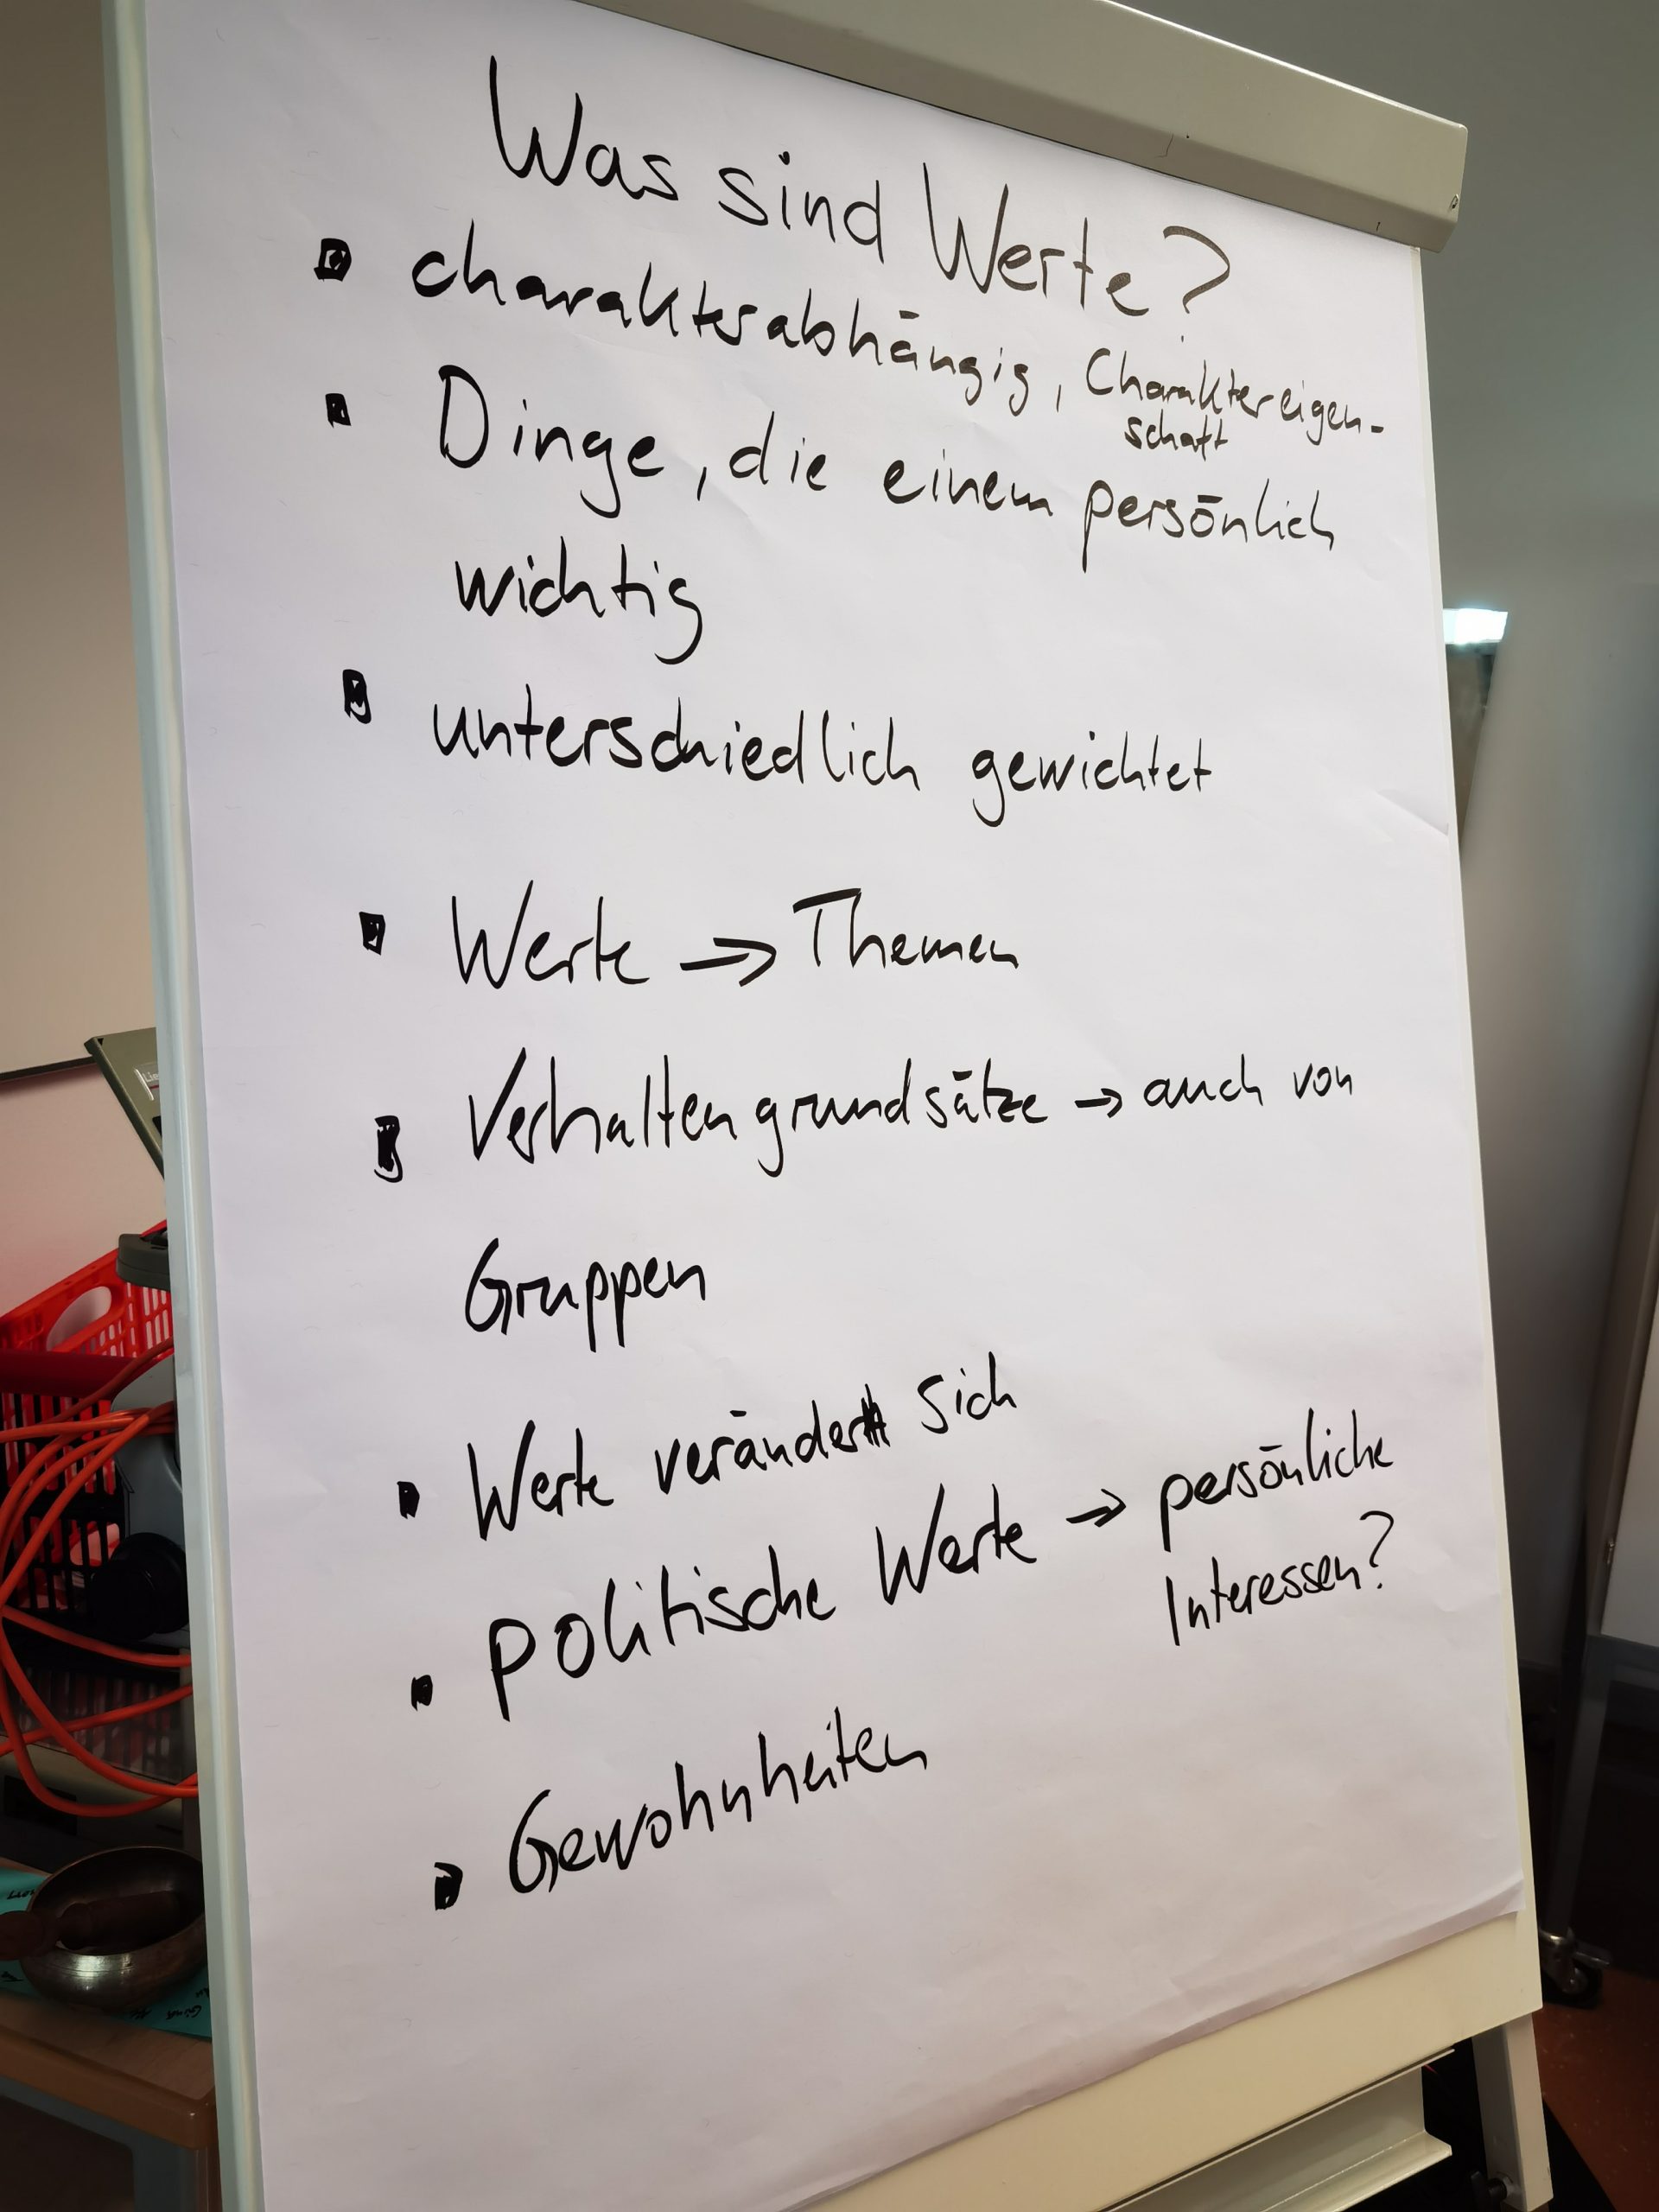 Was sind Werte?
charakterabhängig, Charaktereigen-
schaft
Dinge, die einem persönlich
wichtig
unterschiedlich gewichtet
Werte → Themen
Verhaltengrundsätze → auch von
Gruppen
Werte verändern sich
politische Werte → persönliche
Interessen?
Gewohnheiten